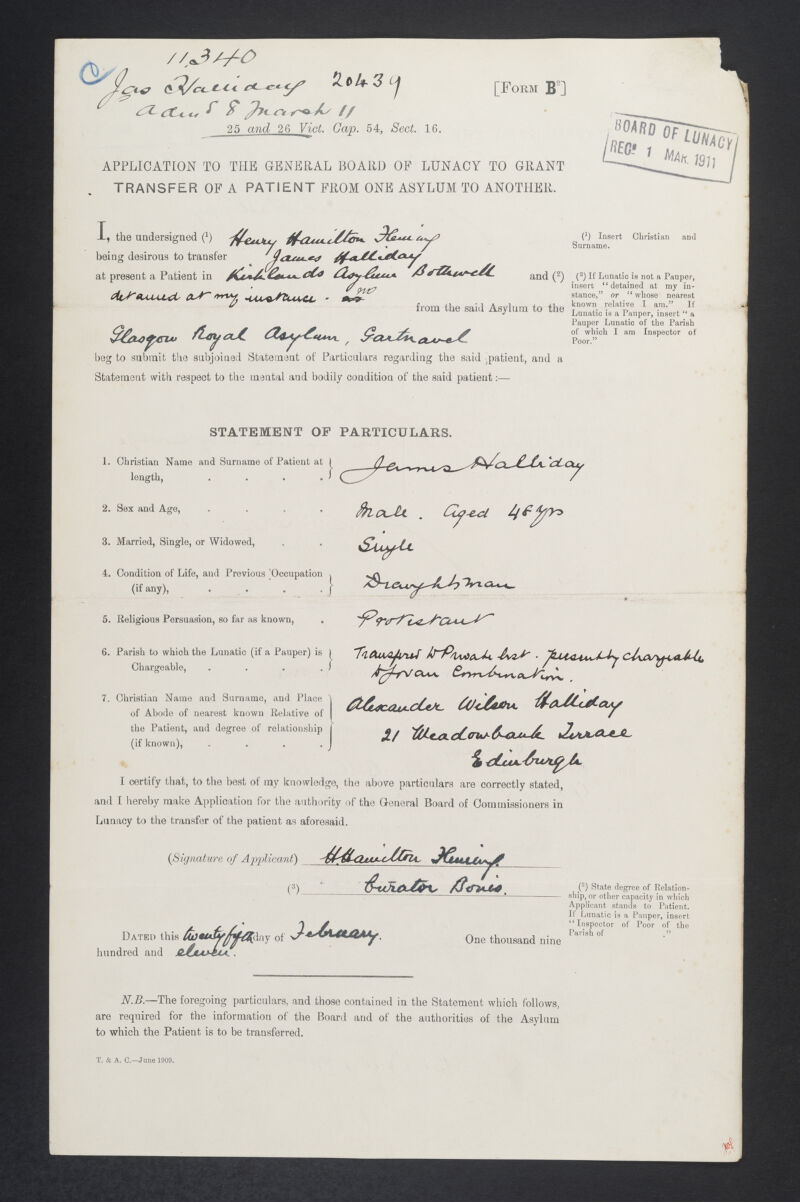 11,340
Jas Halliday 20439
Admd 8 March 11
[FORM B°]
25 and 26 Vict. Cap. 54, Sect. 16.
BOARD OF LUNACY
REC^D 1 MAR. 1911
APPLICATION TO THE GENERAL BOARD OF LUNACY TO GRANT
TRANSFER OF A PATIENT FROM ONE ASYLUM TO ANOTHER.
I, the undersigned (¹) Henry Hamilton Fleming
being desirous to transfer James Halliday
at present a Patient in Kirklands Asylum Bothwell and (²)
detained at my instance.
from the said Asylum to the
Glasgow Royal Asylum, Gartnavel
beg to submit the subjoined Statement of Particulars regarding the said patient, and a
Statement with respect to the mental and bodily condition of the said patient:—
(¹) Insert Christian and
Surname.
(²) If Lunatic is not a Pauper,
insert “detained at my in-
stance,” or “whose nearest
known relative I am.” If
Lunatic is a Pauper, insert “a
Pauper Lunatic of the Parish
of which I am Inspector of
Poor.”
STATEMENT OF PARTICULARS.
1. Christian Name and Surname of Patient at
length, . . . . James Halliday
2. Sex and Age, . . . . Male. Aged 48 yrs
3. Married, Single, or Widowed, . . Single
4. Condition of Life, and Previous Occupation
(if any), . . . . Draughtsman
5. Religious Persuasion, so far as known, . Protestant
6. Parish to which the Lunatic (if a Pauper) is
Chargeable, . . . . Transferred to Private list. presently chargeable
to Govan Combination.
7. Christian Name and Surname, and Place
of Abode of nearest known Relative of
the Patient, and degree of relationship
(if known), . . . . Alexander Wilson Halliday
21 Meadowbank Terrace
Edinburgh
I certify that, to the best of my knowledge, the above particulars are correctly stated,
and I hereby make Application for the authority of the General Board of Commissioners in
Lunacy to the transfer of the patient as aforesaid.
(Signature of Applicant) H. Hamilton Fleming.
(³) Curator Bonis.
(³) State degree of Relation-
ship, or other capacity in which
Applicant stands to Patient.
If Lunatic is a Pauper, insert
“Inspector of Poor of the
Parish of .”
DATED this twenty fifth day of February. One thousand nine
hundred and eleven.
N.B.—The foregoing particulars, and those contained in the Statement which follows,
are required for the information of the Board and of the authorities of the Asylum
to which the Patient is to be transferred.
T. & A. C.—June 1909.